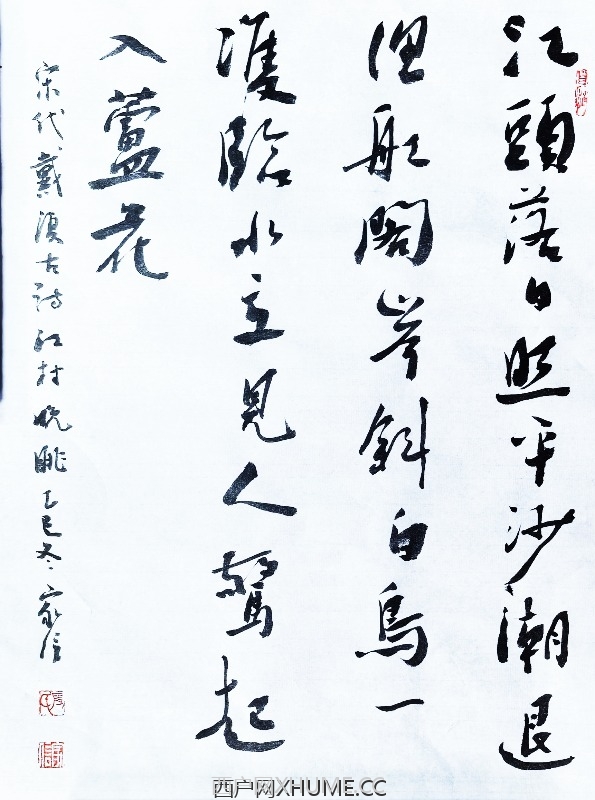 江頭落日照平沙潮退
漁船閣岸斜白鳥一
雙臨水立見人驚起
入蘆花
宋代戴復古詩江村晚眺乙巳冬家信
西户网XHUME.CC